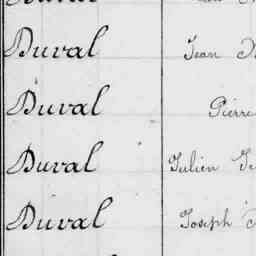 Duval Jean
Duval Pierre
Duval Julien
Duval Joseph